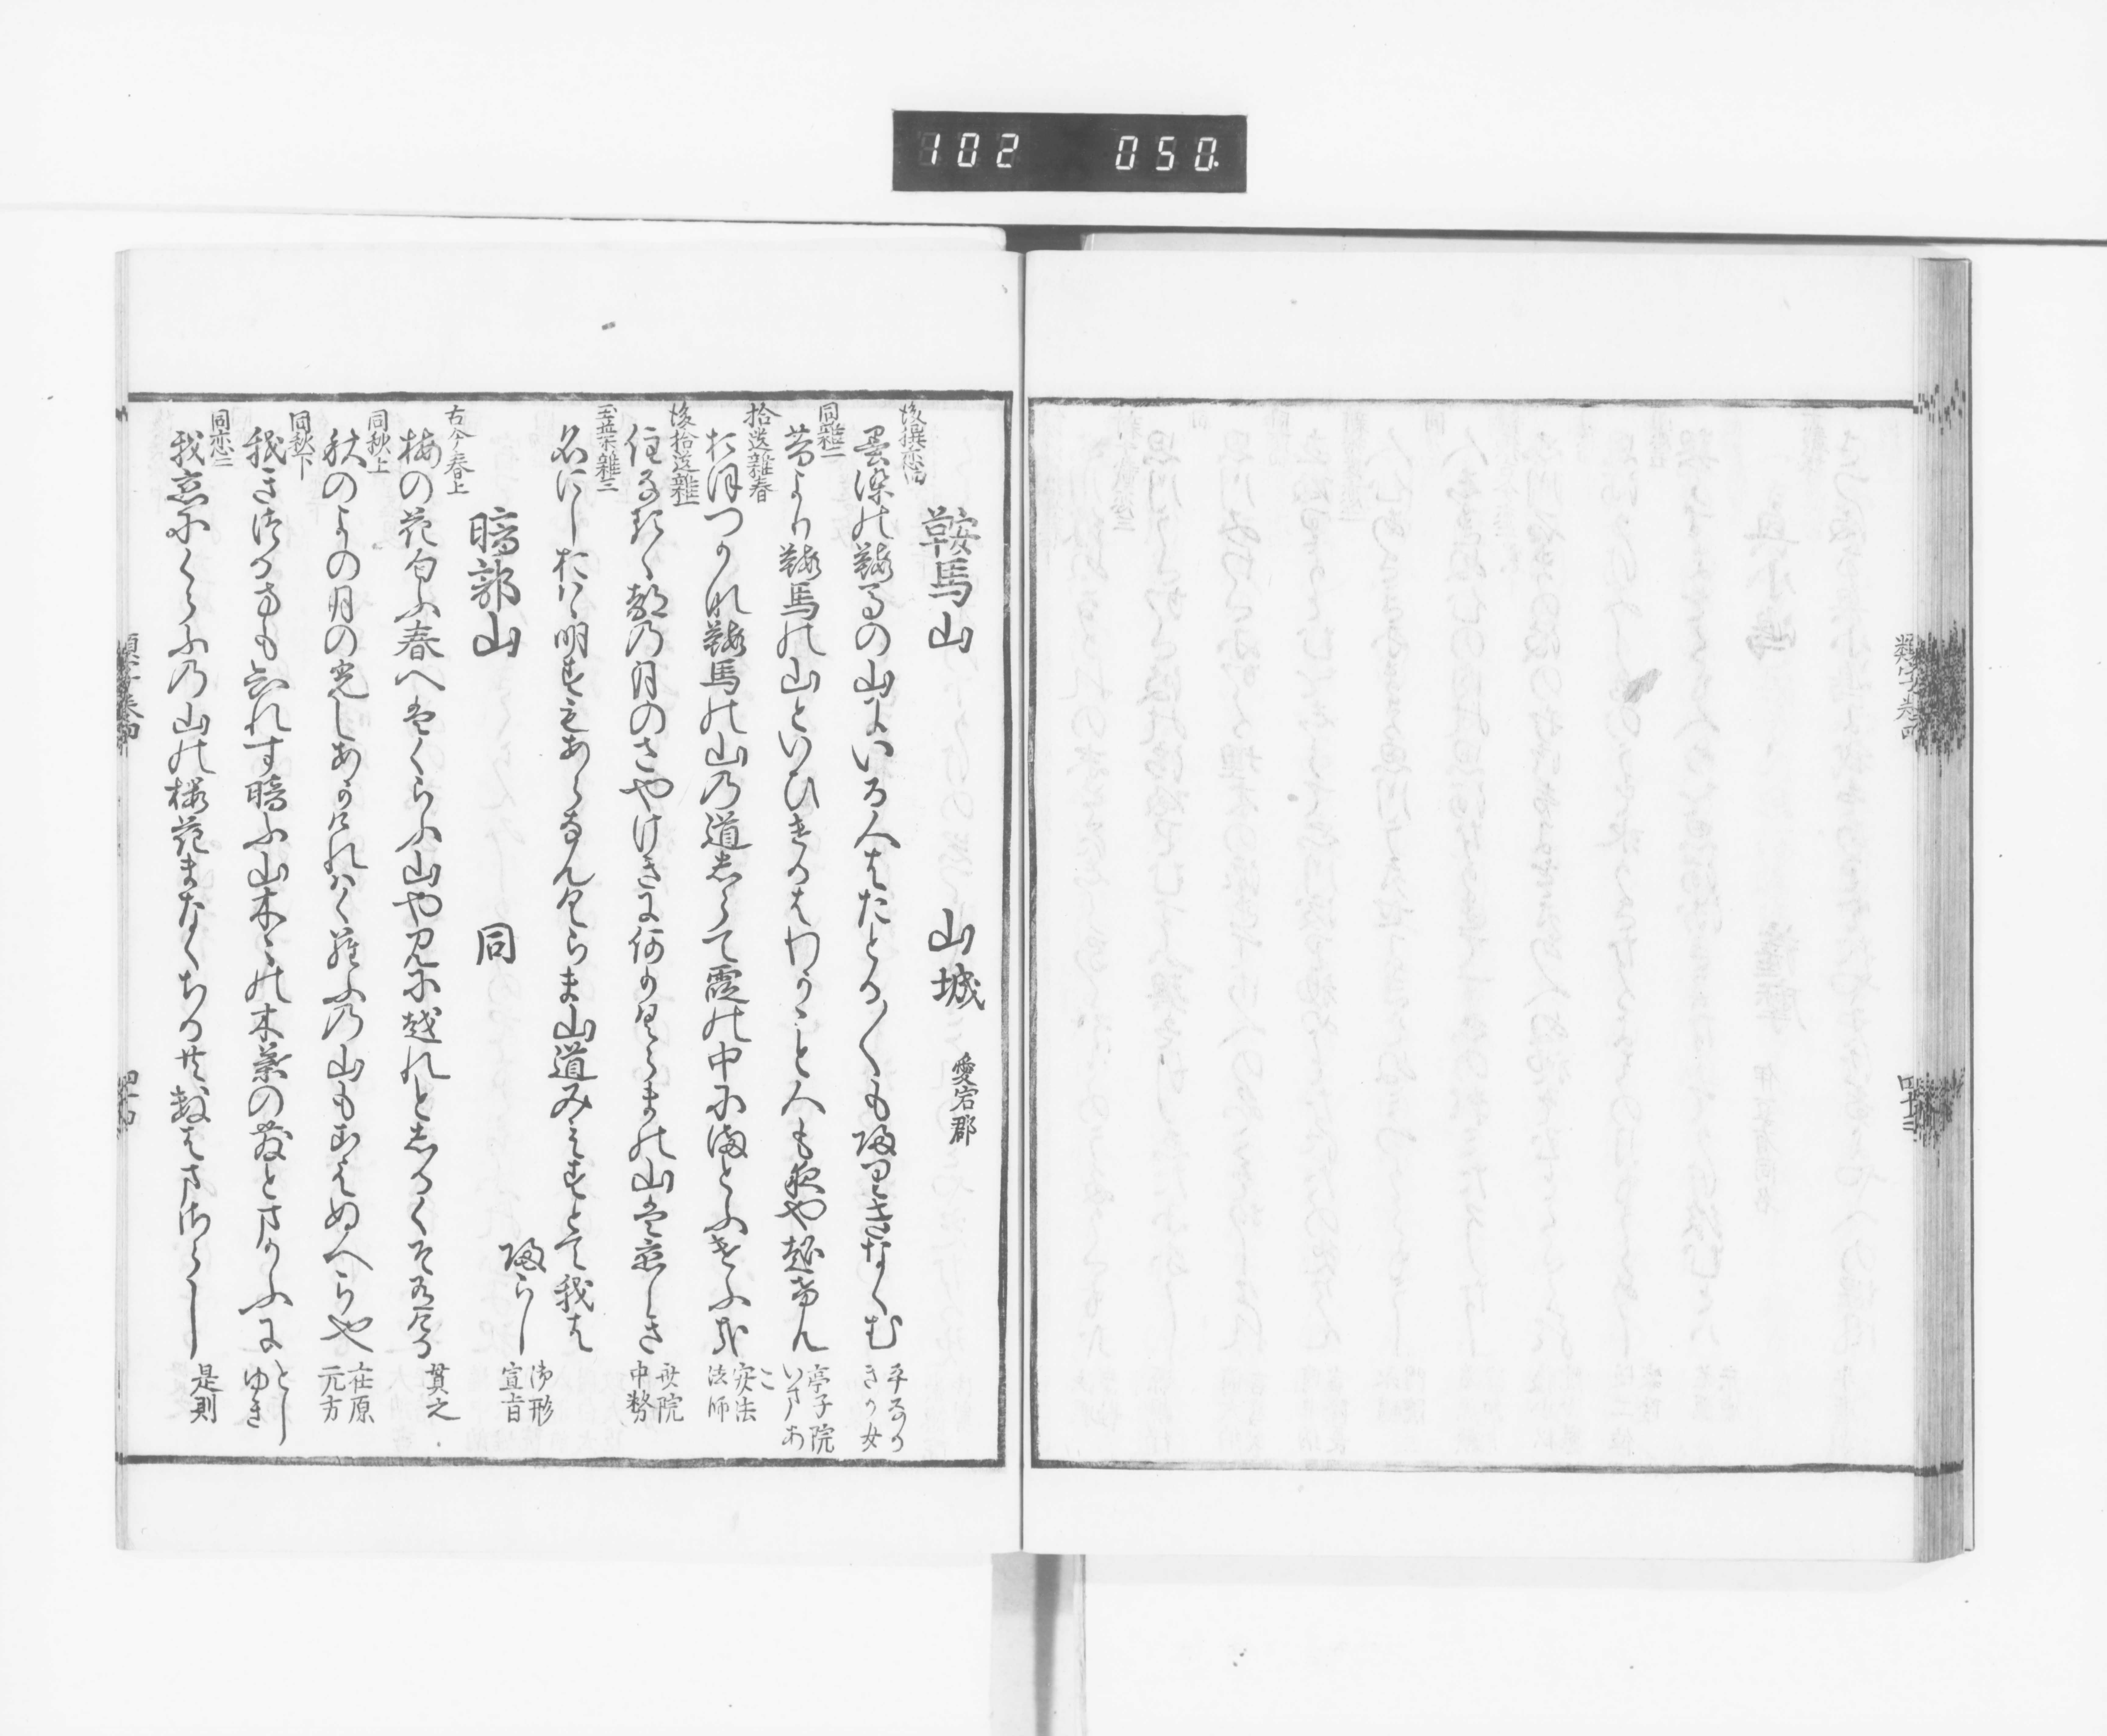 102 050.
類字巻四
四十三
鞍馬山 山城 愛宕郡
後撰恋四
墨染の鞍馬の山にいる人はたとる〱も帰りきなゝむ 平なかきか女
同雑二
昔より鞍馬の山といひけるはわかこと人も夜や越けん 亭子院いまあこ
拾遺雑春
おほつかな鞍馬の山の道しらて霞の中にまとふけふ哉 安法法師
後拾遺雑一
住なるゝ都の月のさやけきに何かくらまの山は恋しき 斎院中務
玉葉雑三
名にしおはゝ明すもあらなんくらま山道みえすとて我は帰らし 御形宣旨
暗部山 同
古今春上
梅の花匂ふ春へはくらふ山やみに越れとしるくそ有ける 貫之
同秋上
秋のよの月の光しあかけれはくらふの山もこえぬへらや 在原元方
同秋下
我きつるかたも しられす暗ふ山木ゝの木葉の散とまかふに としゆき
同恋二
我恋にくらふの山の桜花まなくちる共数はまさらし 是則